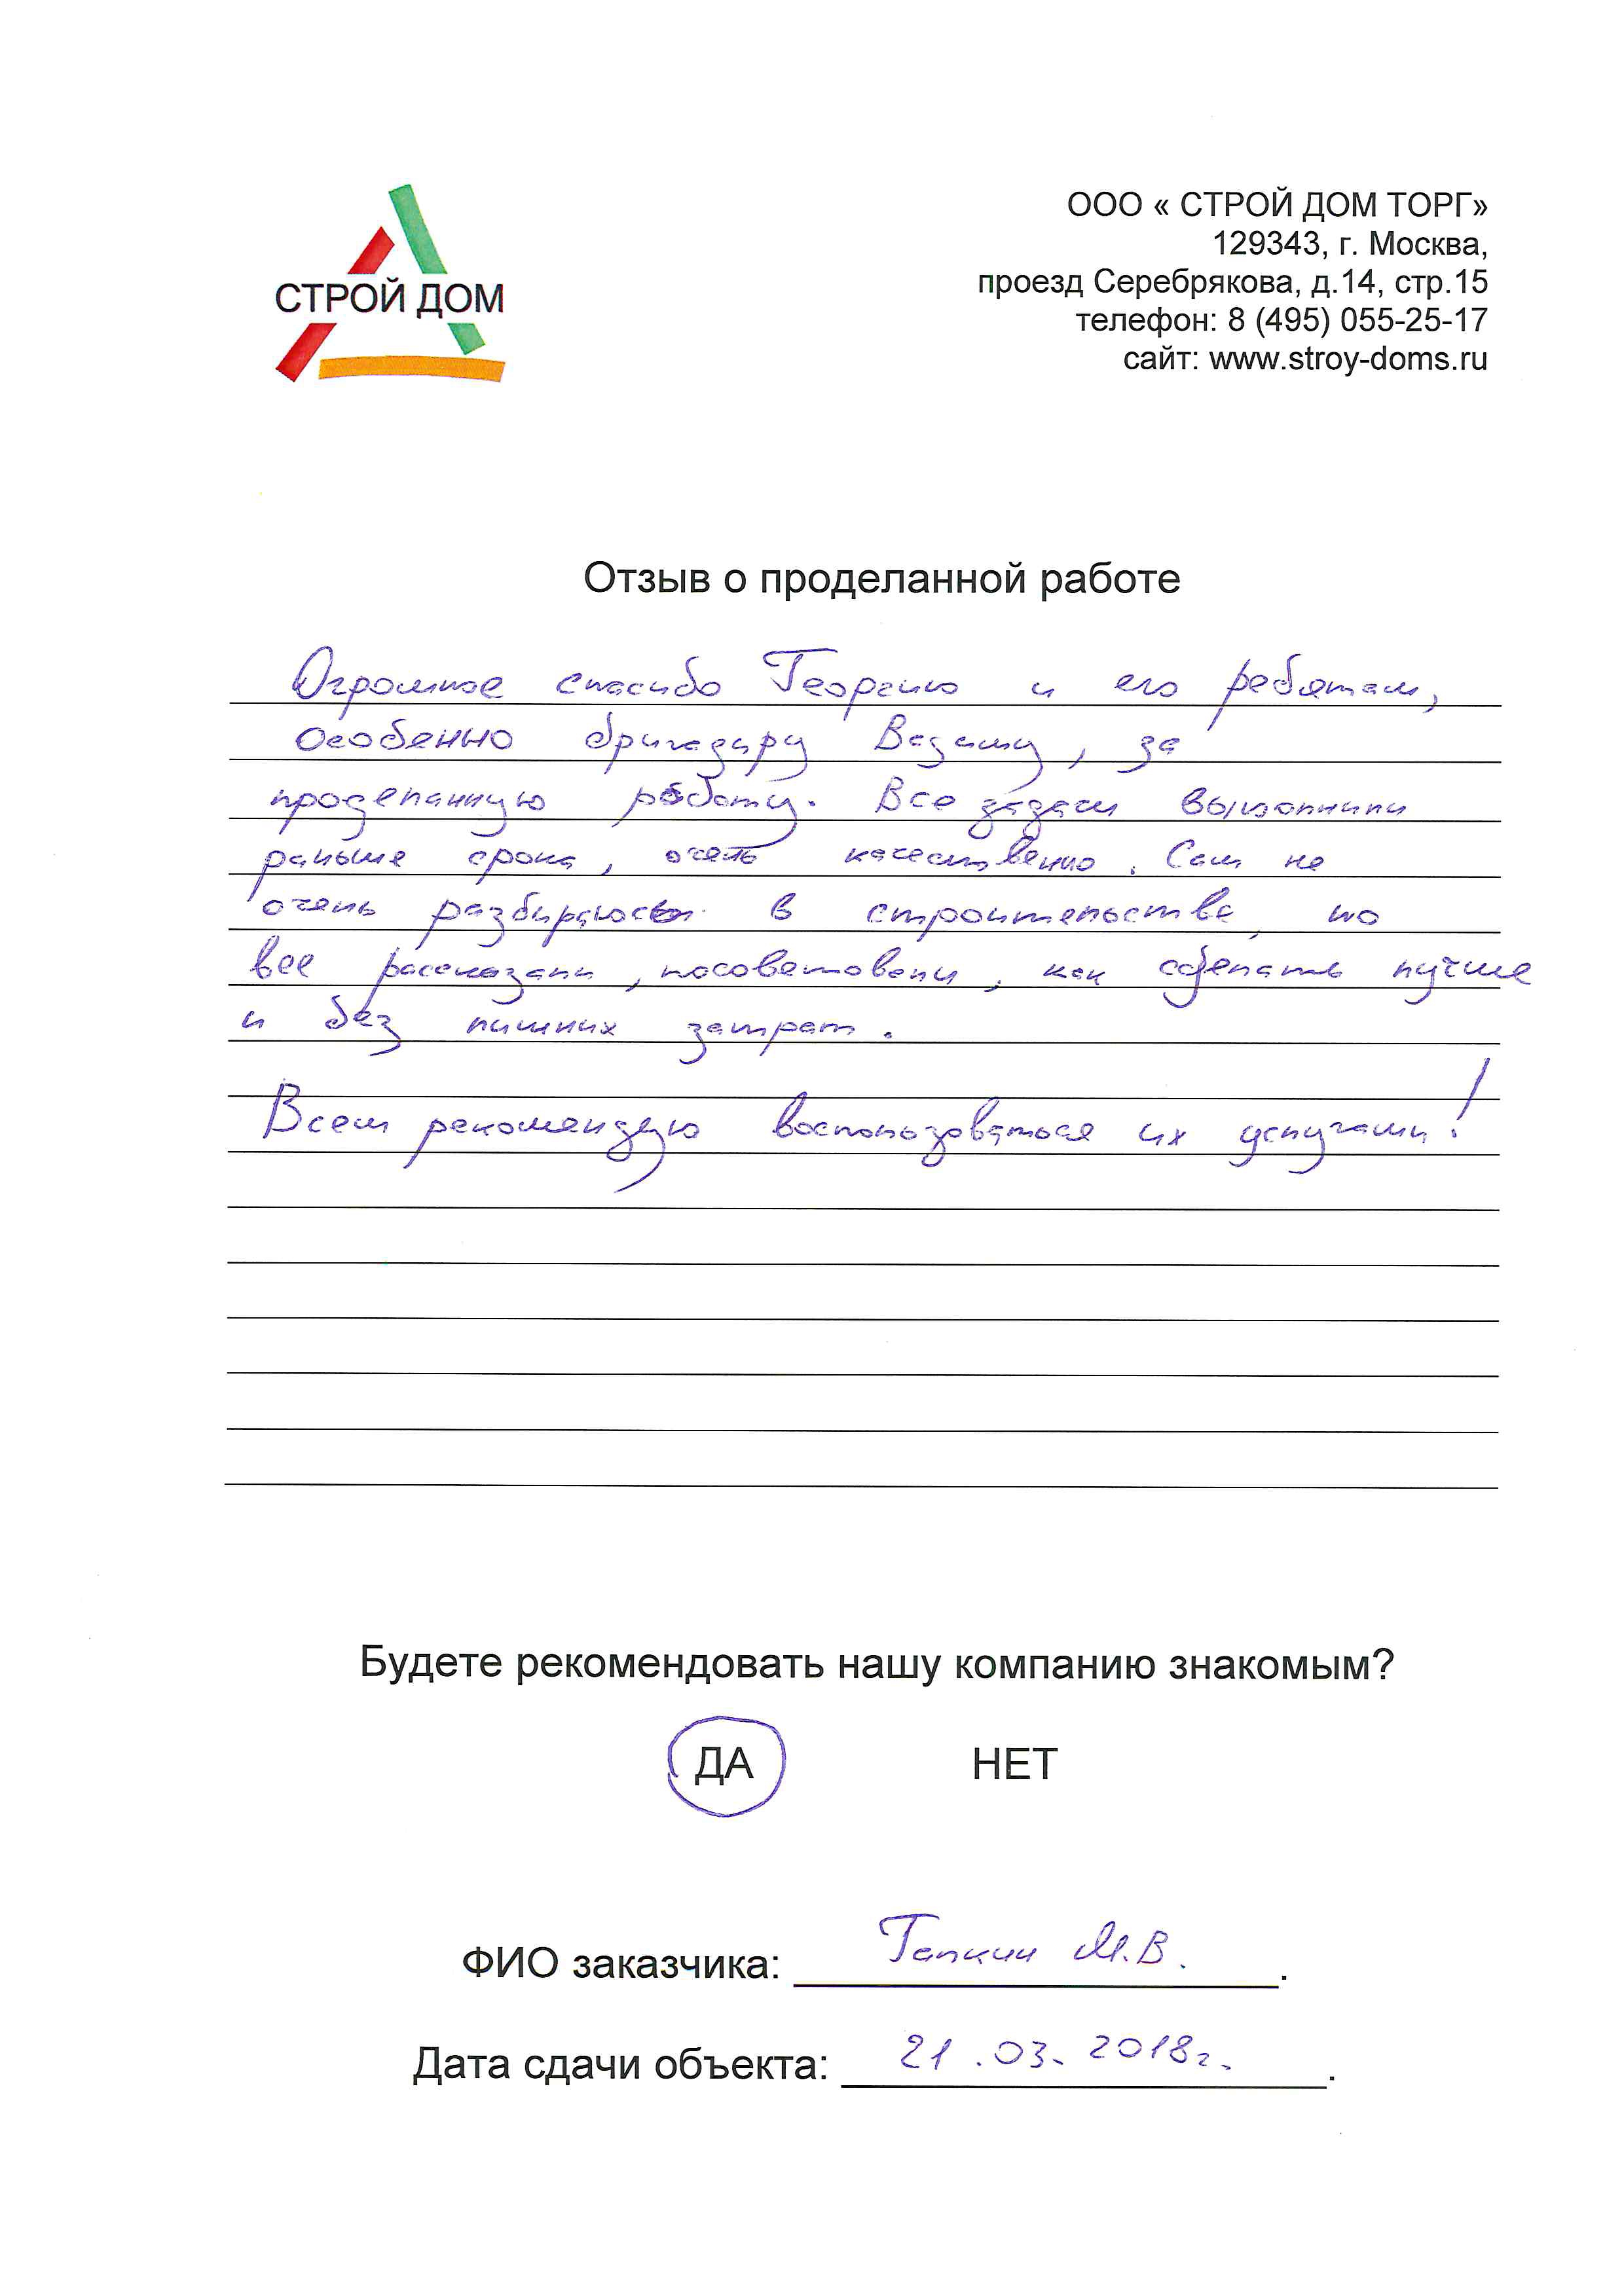 СТРОЙ ДОМ
ООО « СТРОЙ ДОМ ТОРГ»
129343, г. Москва,
проезд Серебрякова, д.14, стр.15
телефон: 8 (495) 055-25-17
сайт: www.stroy-doms.ru
Отзыв о проделанной работе
Огромное спасибо Георгию и его ребятам,
особенно бригадиру Вадиму, за
проделанную работу. Все задачи выполнили
раньше срока, очень качественно. Сам не
очень разбираюсь в строительстве, но
все рассказали, посоветовали, как сделать лучше
и без лишних затрат.
Всем рекомендую воспользоваться их услугами!
Будете рекомендовать нашу компанию знакомым?
ДА НЕТ
ФИО заказчика: Галкин М.В.
Дата сдачи объекта: 21.03.2018г.